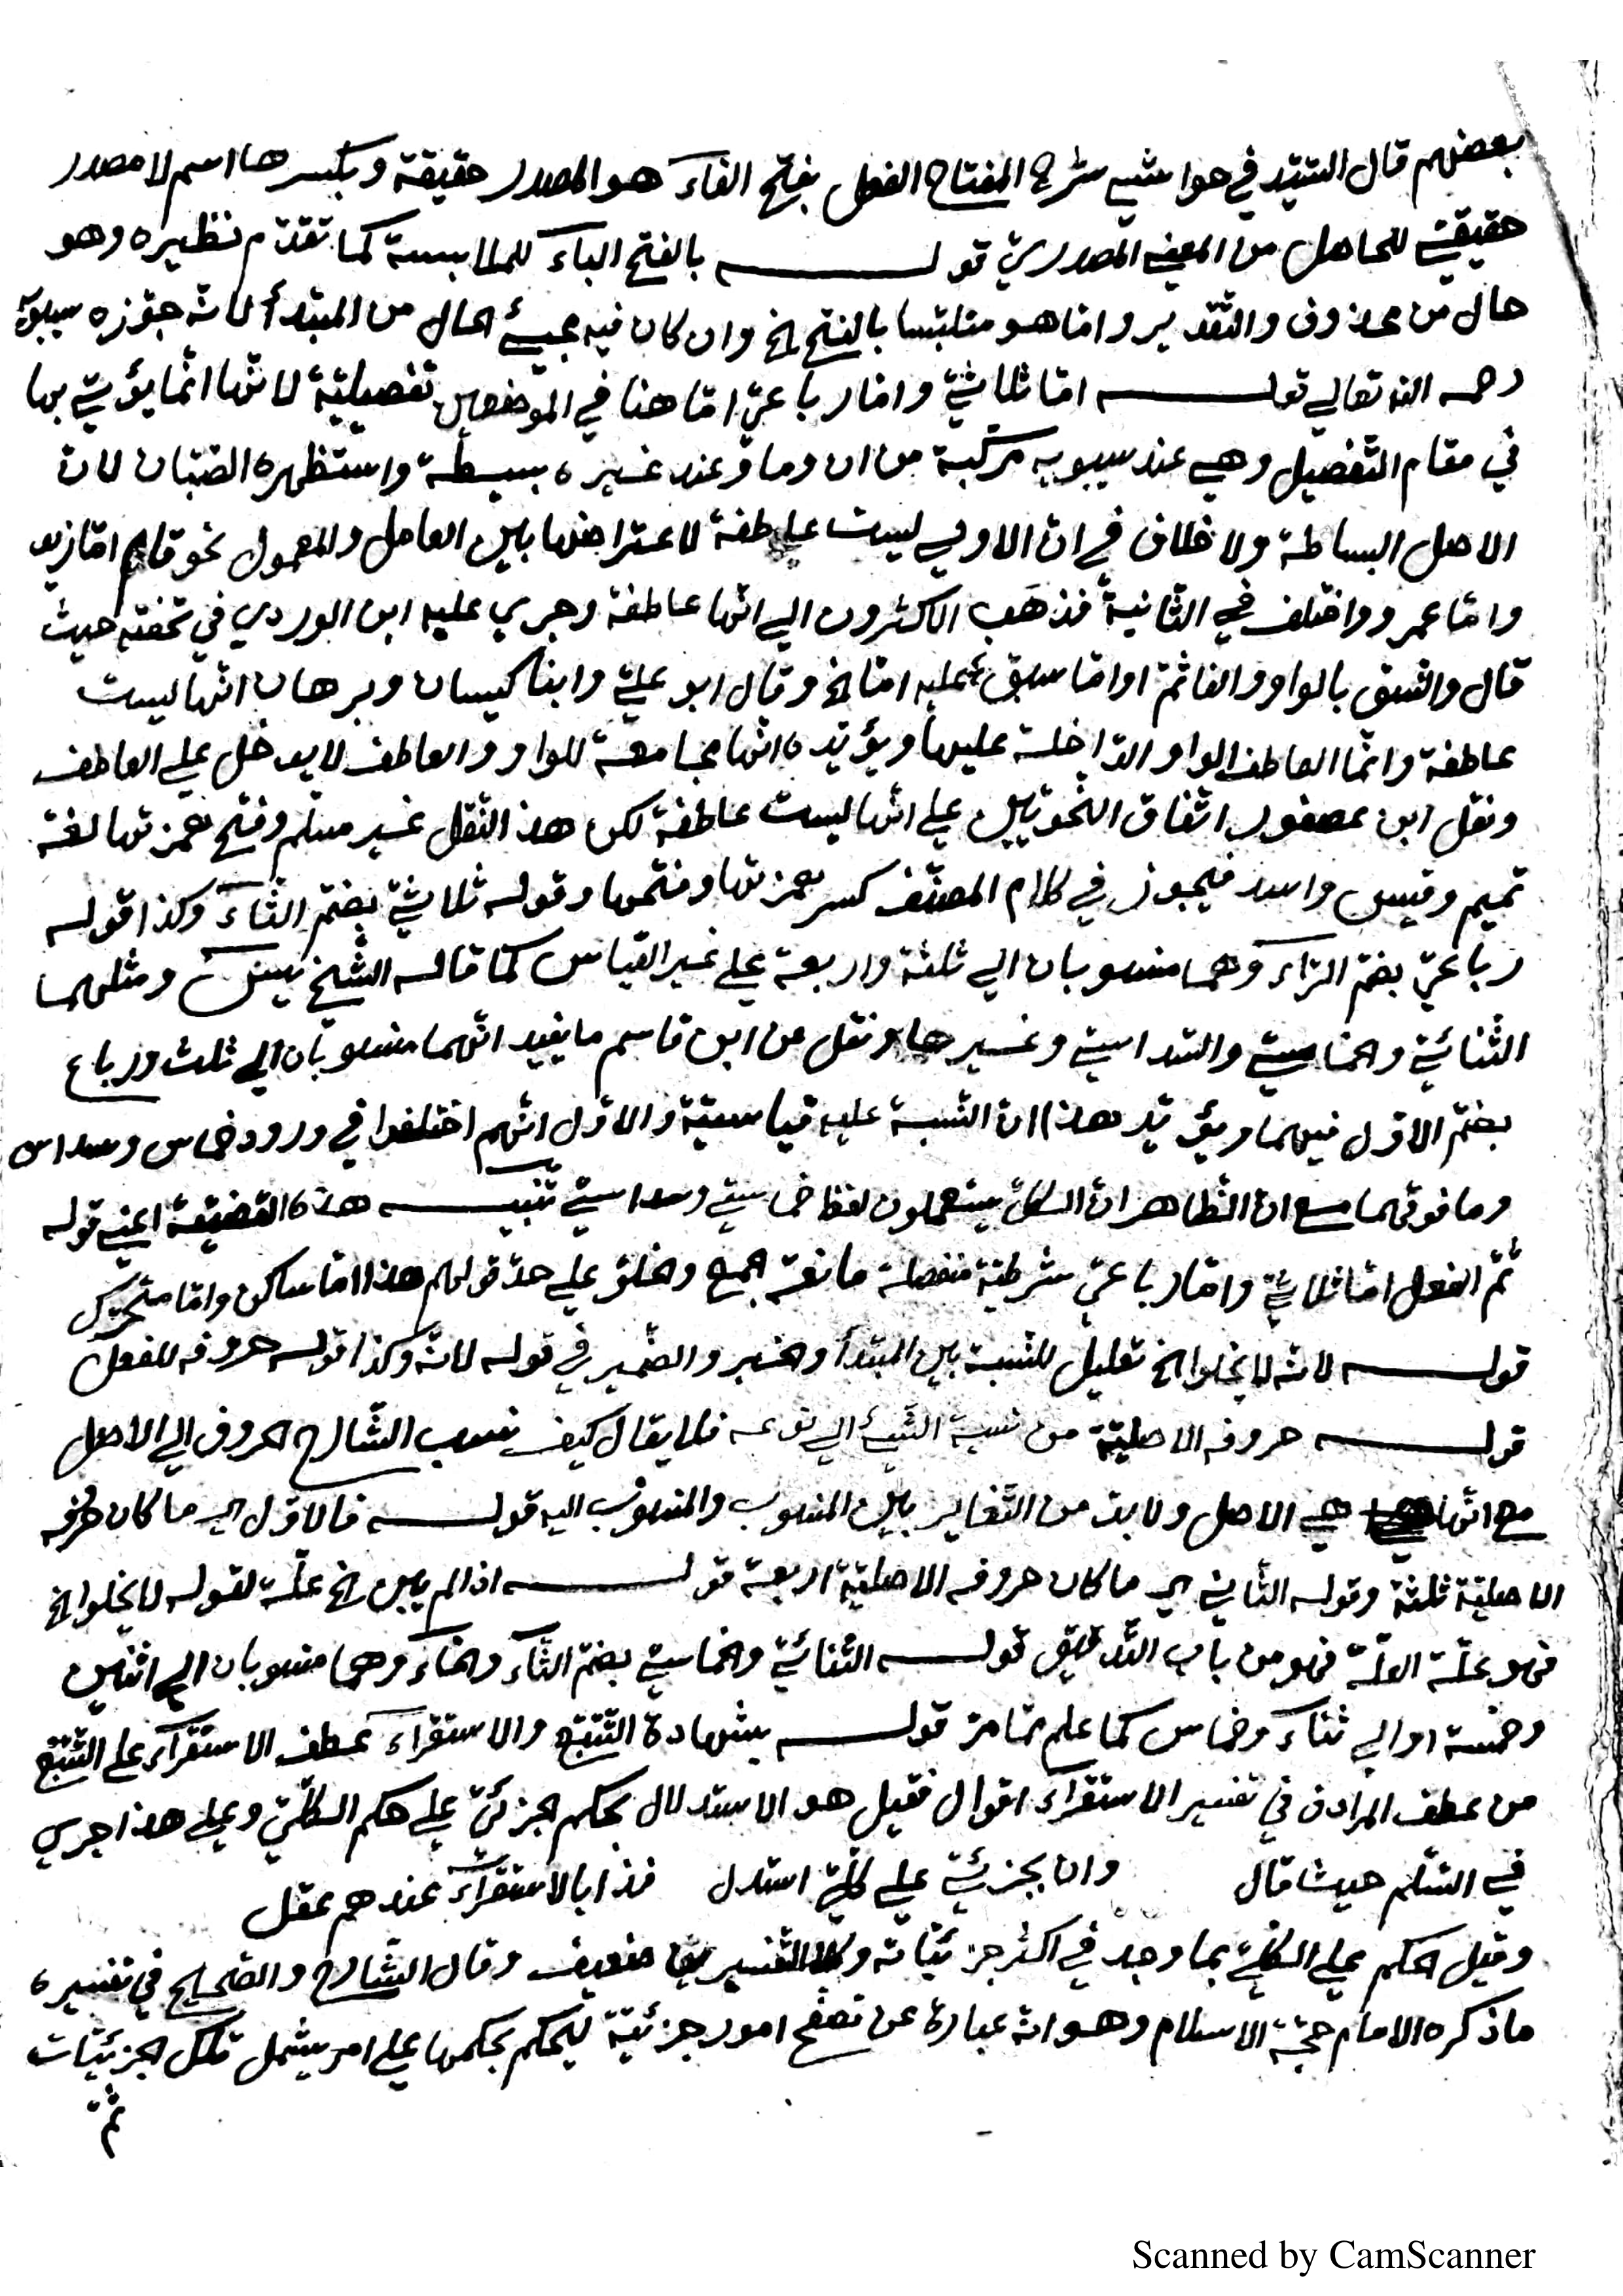 بعضهم قال السّيّد في حواشيه شرح المفتاح الفعل بفتح الفاء هو المصدر حقيقة وبكسرها اسم لا مصدر
حقيقيّة للحاصل من المعنى المصدريّ قوله بالفتح الباء للملابسة كما تقدّم نظيره وهو
حال من محذوف والتّقدير وامّا هو متلبّسا بالفتح الخ وان كان فيه مجيئ الحال من المبتدأ لانّه جوّزه سيبويه
رحمه الله تعالى قوله امّا ثلاثيّ وامّا رباعيّ امّا هنا في الموضعين تفصيليّة لانّها انّما يؤتى بها
في مقام التّفصيل وهي عند سيبويه مركّبة من ان وما وعند غيره بسيطة واستظهره الصّبّان لانّ
الاصل البساطة ولا خلاف في انّ الاولى ليست عاطفة لاعتراضها بين العامل والمعمول نحو قام امّا زيد
وامّا عمرو واختلف في الثّانية فذهب الاكثرون الى انّها عاطفة وجرى عليه ابن الوردي في تحفته حيث
قال والنّسق بالواو والفا ثمّ او امّا سبق عليه امّا الخ وقال ابو عليّ وابنا كيسان وبرهان انّها ليست
عاطفة وانّما العاطف الواو الدّاخلة عليها ويؤيّده انّها مجامعة للواو والعاطف لا يدخل على العاطف
ونقل ابن عصفور اتّفاق النّحويّين على انّها ليست عاطفة لكن هذا النّقل غير مسلّم وفتح همزتها لغة
تميم وقيس واسد فيجوز في كلام المصنّف كسر همزتها وفتحها وقوله ثلاثيّ بضمّ الثّاء وكذا قوله
رباعيّ بضمّ الرّاء وهما منسوبان الى ثلثة واربعة على غير القياس كما قاله الشّيخ يٰسٓ ومثلهما
الثّنائيّ والخماسيّ والسّداسيّ وغيرها ونقل عن ابن قاسم ما يفيد انّهما منسوبان الى ثلث ورباع
بضمّ الاوّل فيهما ويؤيّد هذا انّ النّسبة عليه قياسيّة والاوّل انّهم اختلفوا في ورود خماس وسداس
وما فوقهما مع انّ الظّاهر انّ الكلّ يستعملون لفظ خماسيّ وسداسيّ تنبيه هذه القضيّة اعني قوله
ثمّ الفعل امّا ثلاثيّ وامّا رباعيّ شرطيّة منفصلة مانعة الجمع والخلوّ على حدّ قولهم هذا امّا ساكن وامّا متحرّك
قوله لانّه لا يخلوا الخ تعليل للنّسبة بين المبتدأ والخبر والضّمير في قوله لانّه وكذا قوله حروفه للفعل
قوله حروفه الاصليّة من نسبة الشّيئ الى نوعه فلا يقال كيف نسب الشّارح الحروف الى الاصل
مع انّها هي الاصل ولا بدّ من التّغاير بين المنسوب والمنسوب اليه قوله فالاوّل اي ما كان حروفه
الاصليّة ثلثة وقوله الثّاني اي ما كان حروفه الاصليّة اربعة قوله اذا لم يبن الخ علّة لقوله لا يخلوا الخ
فهو علّة العلّة فهو من باب التّدقيق قوله الثّنائيّ والخماسيّ بضمّ الثّاء والخاء وهما منسوبان الى اثنين
وخمسة او الى ثناء وخماس كما علم ممّا مرّ قوله بشهادة التّتبّع والاستقراء عطف الاستقراء على التّتبّع
من عطف المرادف في تفسير الاستقراء اقوال فقيل هو الاستدلال بحكم الجزئيّ على حكم الكلّيّ وعلى هذا جرى
في السّلّم حيث قال وان بجزئيّ على كلّيّ استدل فذا بالاستقراء عندهم عقل
وقيل الحكم على الكلّيّ بما وجد في اكثر جزئيّاته وكلا التّفسيرين ضعيف وقال الشّارح والصّحيح في تفسيره
ما ذكره الامام حجّة الاسلام وهو انّه عبارة عن تصفّح امور جزئيّة ليحكم بحكمها على امر يشمل تلك الجزئيّات
ثمّ
Scanned by CamScanner